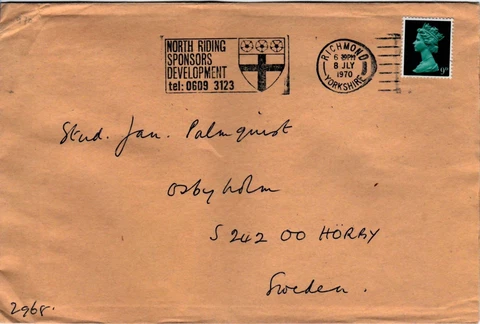 NORTH RIDING
SPONSORS
DEVELOPMENT
tel: 0609 3123
RICHMOND
8 JLY
1970
YORKSHIRE
9D
Stud. Jan. Palmquist
Osbyholm
S 242 00 HÖRBY
Sweden.
2968.